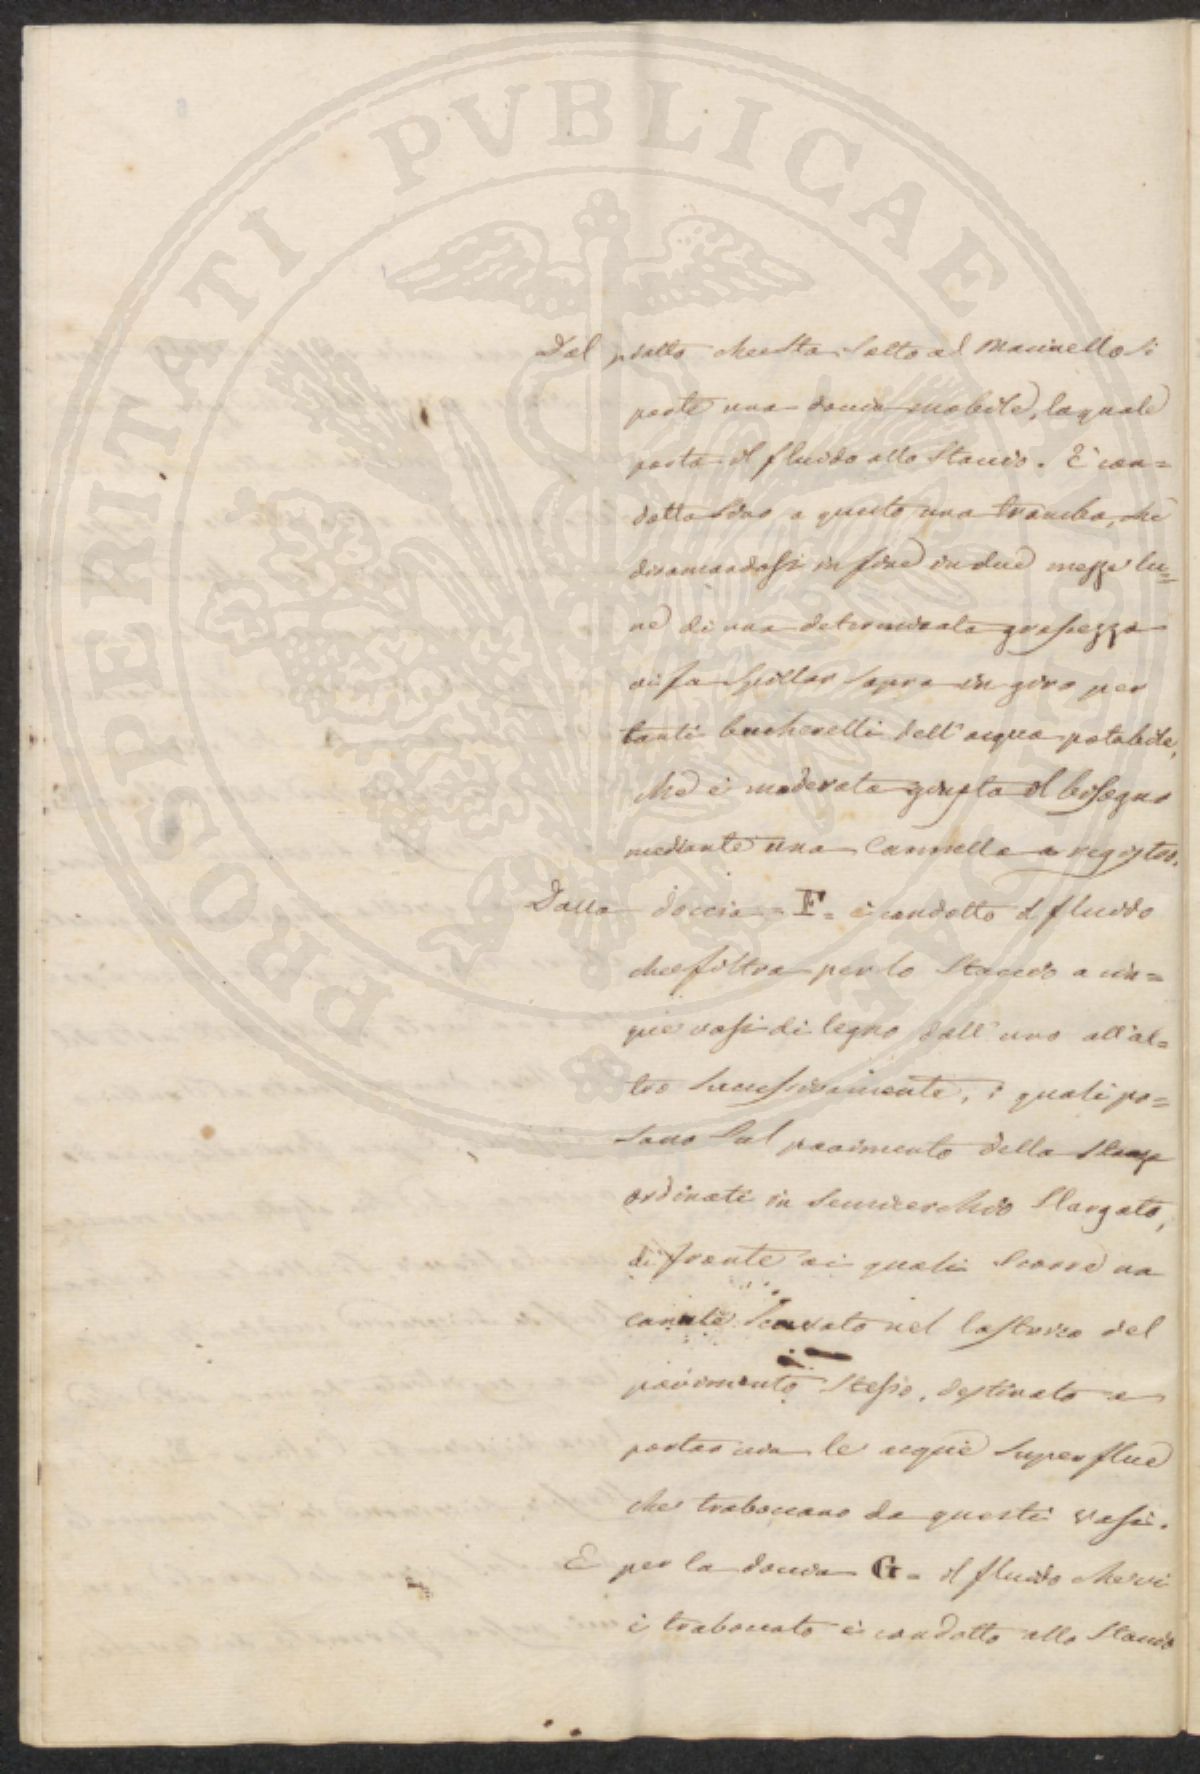 PROSPERITATI PVBLICAE AVGENDAE
Dal piatto che sta sotto al Macinello si
parte una doccia mobile, la quale
porta il fluido allo Staccio. È con=
dotta sino a questo una tromba, che
diramandosi in fine in due mezze lu=
ne di una determinata grossezza
vi fa spillar sopra in giro per
tanti bucherelli dell'acqua potabile,
che è moderata giusta il bisogno
mediante una Cannella a registro.
Dalla doccia = F = è condotto il fluido
che filtra per lo Staccio a cin=
que vasi di legno dall'uno all'al=
tro successivamente, i quali po=
sano sul pavimento della
ordinati in semicerchio slargato,
di fronte ai quali scorre un
canale scavato nel lastrico del
pavimento stesso, destinato a
portar via le acque superflue
che traboccano da questi vasi.
E per la doccia G = il fluido che vi
è traboccato è condotto allo Staccio